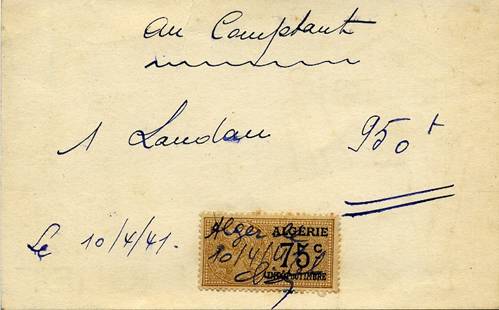 au Comptant
1 Landau 950 f
Le 10/4/41.
ALGÉRIE
Alger le
75 c
10/4/41